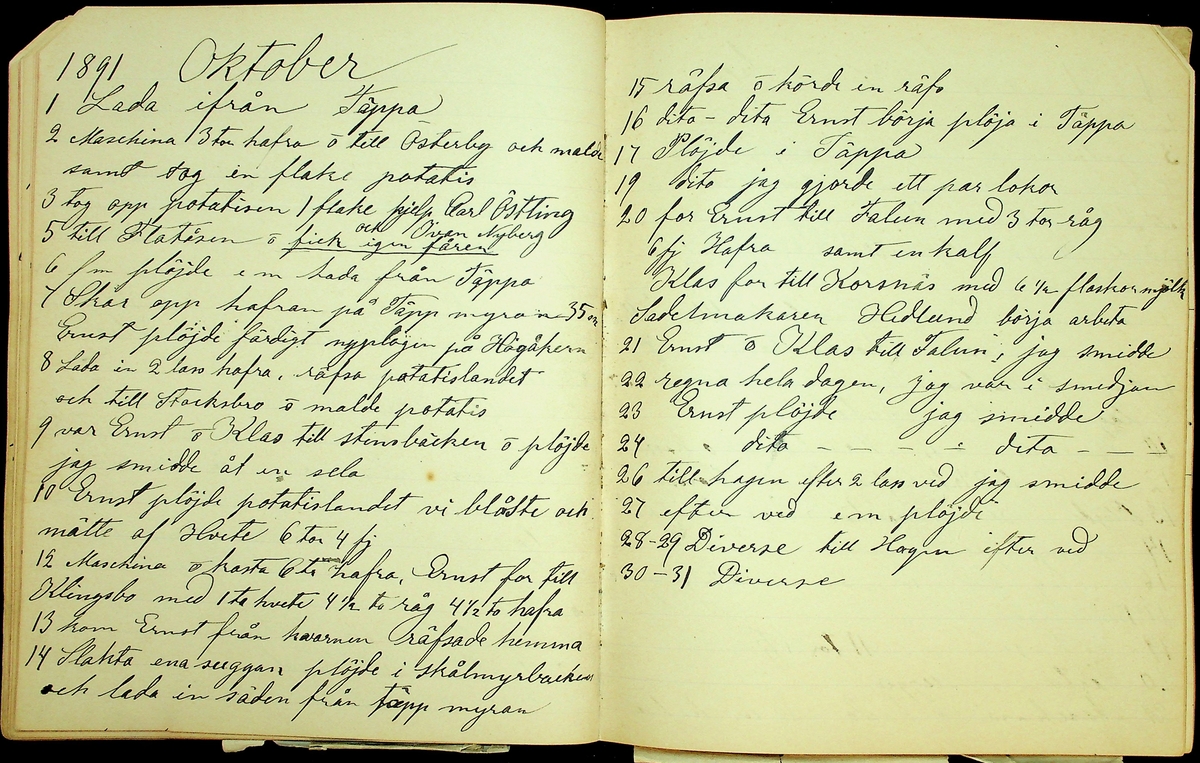 1891 Oktober
1 Lada ifrån Täppa
2 Maschina 3 tor hafra o till Österby och malde
samt tog en flake potatis
3 tog opp potatisen 1 flake hjelp Carl Östling
och Öven Nyberg
5 till Flatåsen o fick igen fåren
6 fm plöjde e m Lada från Täppa
7 Skar opp hafran på Täpp myran 35
Ernst plöjde färdigt nyplögen på Högåkern
8 Lada in 2 lass hafra, räfsa potatislandet
och till Stocksbro o malde potatis
9 var Ernst o Klas till stensbäcken o plöjde
jag smidde åt en sela
10 Ernst plöjde potatislandet vi blåste och
mätte af Hvete 6 tor 4 fj
12 Maschina o kasta 6 to hafra, Ernst for till
Klingsbo med 1 to hvete 4 1/2 to råg 4 1/2 to hafra
13 kom Ernst från kvarnen räfsade hemma
14 Slakta ena suggan plöjde i skålmyrbacken
och lada in säden från täpp myran
15 räfsa o körde in räfs
16 dito - dita Ernst börja plöja i Täppa
17 Plöjde i Täppa
19 dito jag gjorde ett par lokor
20 for Ernst till Falun med 3 tor råg
6 fj Hafra samt en kalf
Klas for till Korsnäs med 6 1/2 flaskor mjölk
Sadelmakaren Hedlund börja arbeta
21 Ernst o Klas till Falun, jag smidde
22 regna hela dagen, jag var i smedjan
23 Ernst plöjde jag smidde
24 dito - - - - dito - - -
26 till hagen efter 2 lass ved jag smidde
27 efter ved e m plöjde
28-29 Diverse till Hagen efter ved
30-31 Diverse